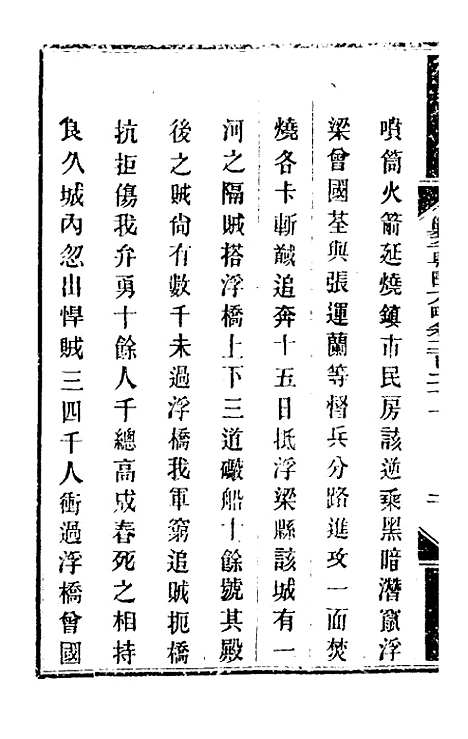 噴筒火箭延燒鎮市民房該逆乘黑暗潛竄浮
梁曾國荃與張運蘭等督兵分路進攻一面焚
燒各卡斬馘追奔十五日抵浮梁縣該城有一
河之隔賊搭浮橋上下三道礮船十餘號其殿
後之賊尙有數千未過浮橋我軍窮追賊扼橋
抗拒傷我弁勇十餘人千總高成春死之相持
良久城內忽出悍賊三四千人衝過浮橋曾國